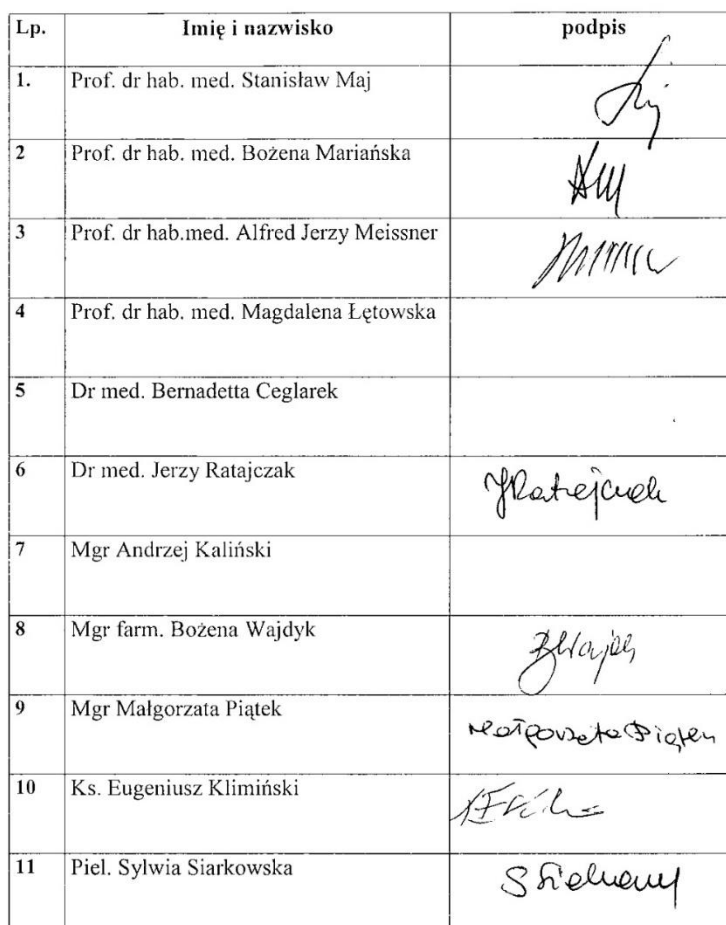 Lp. Imię i nazwisko podpis
1. Prof. dr hab. med. Stanisław Maj
2 Prof. dr hab. med. Bożena Mariańska
3 Prof. dr hab.med. Alfred Jerzy Meissner
4 Prof. dr hab. med. Magdalena Łętowska
5 Dr med. Bernadetta Ceglarek
6 Dr med. Jerzy Ratajczak JRatajczak
7 Mgr Andrzej Kaliński
8 Mgr farm. Bożena Wajdyk
9 Mgr Małgorzata Piątek Małgorzata Piątek
10 Ks. Eugeniusz Klimiński
11 Piel. Sylwia Siarkowska